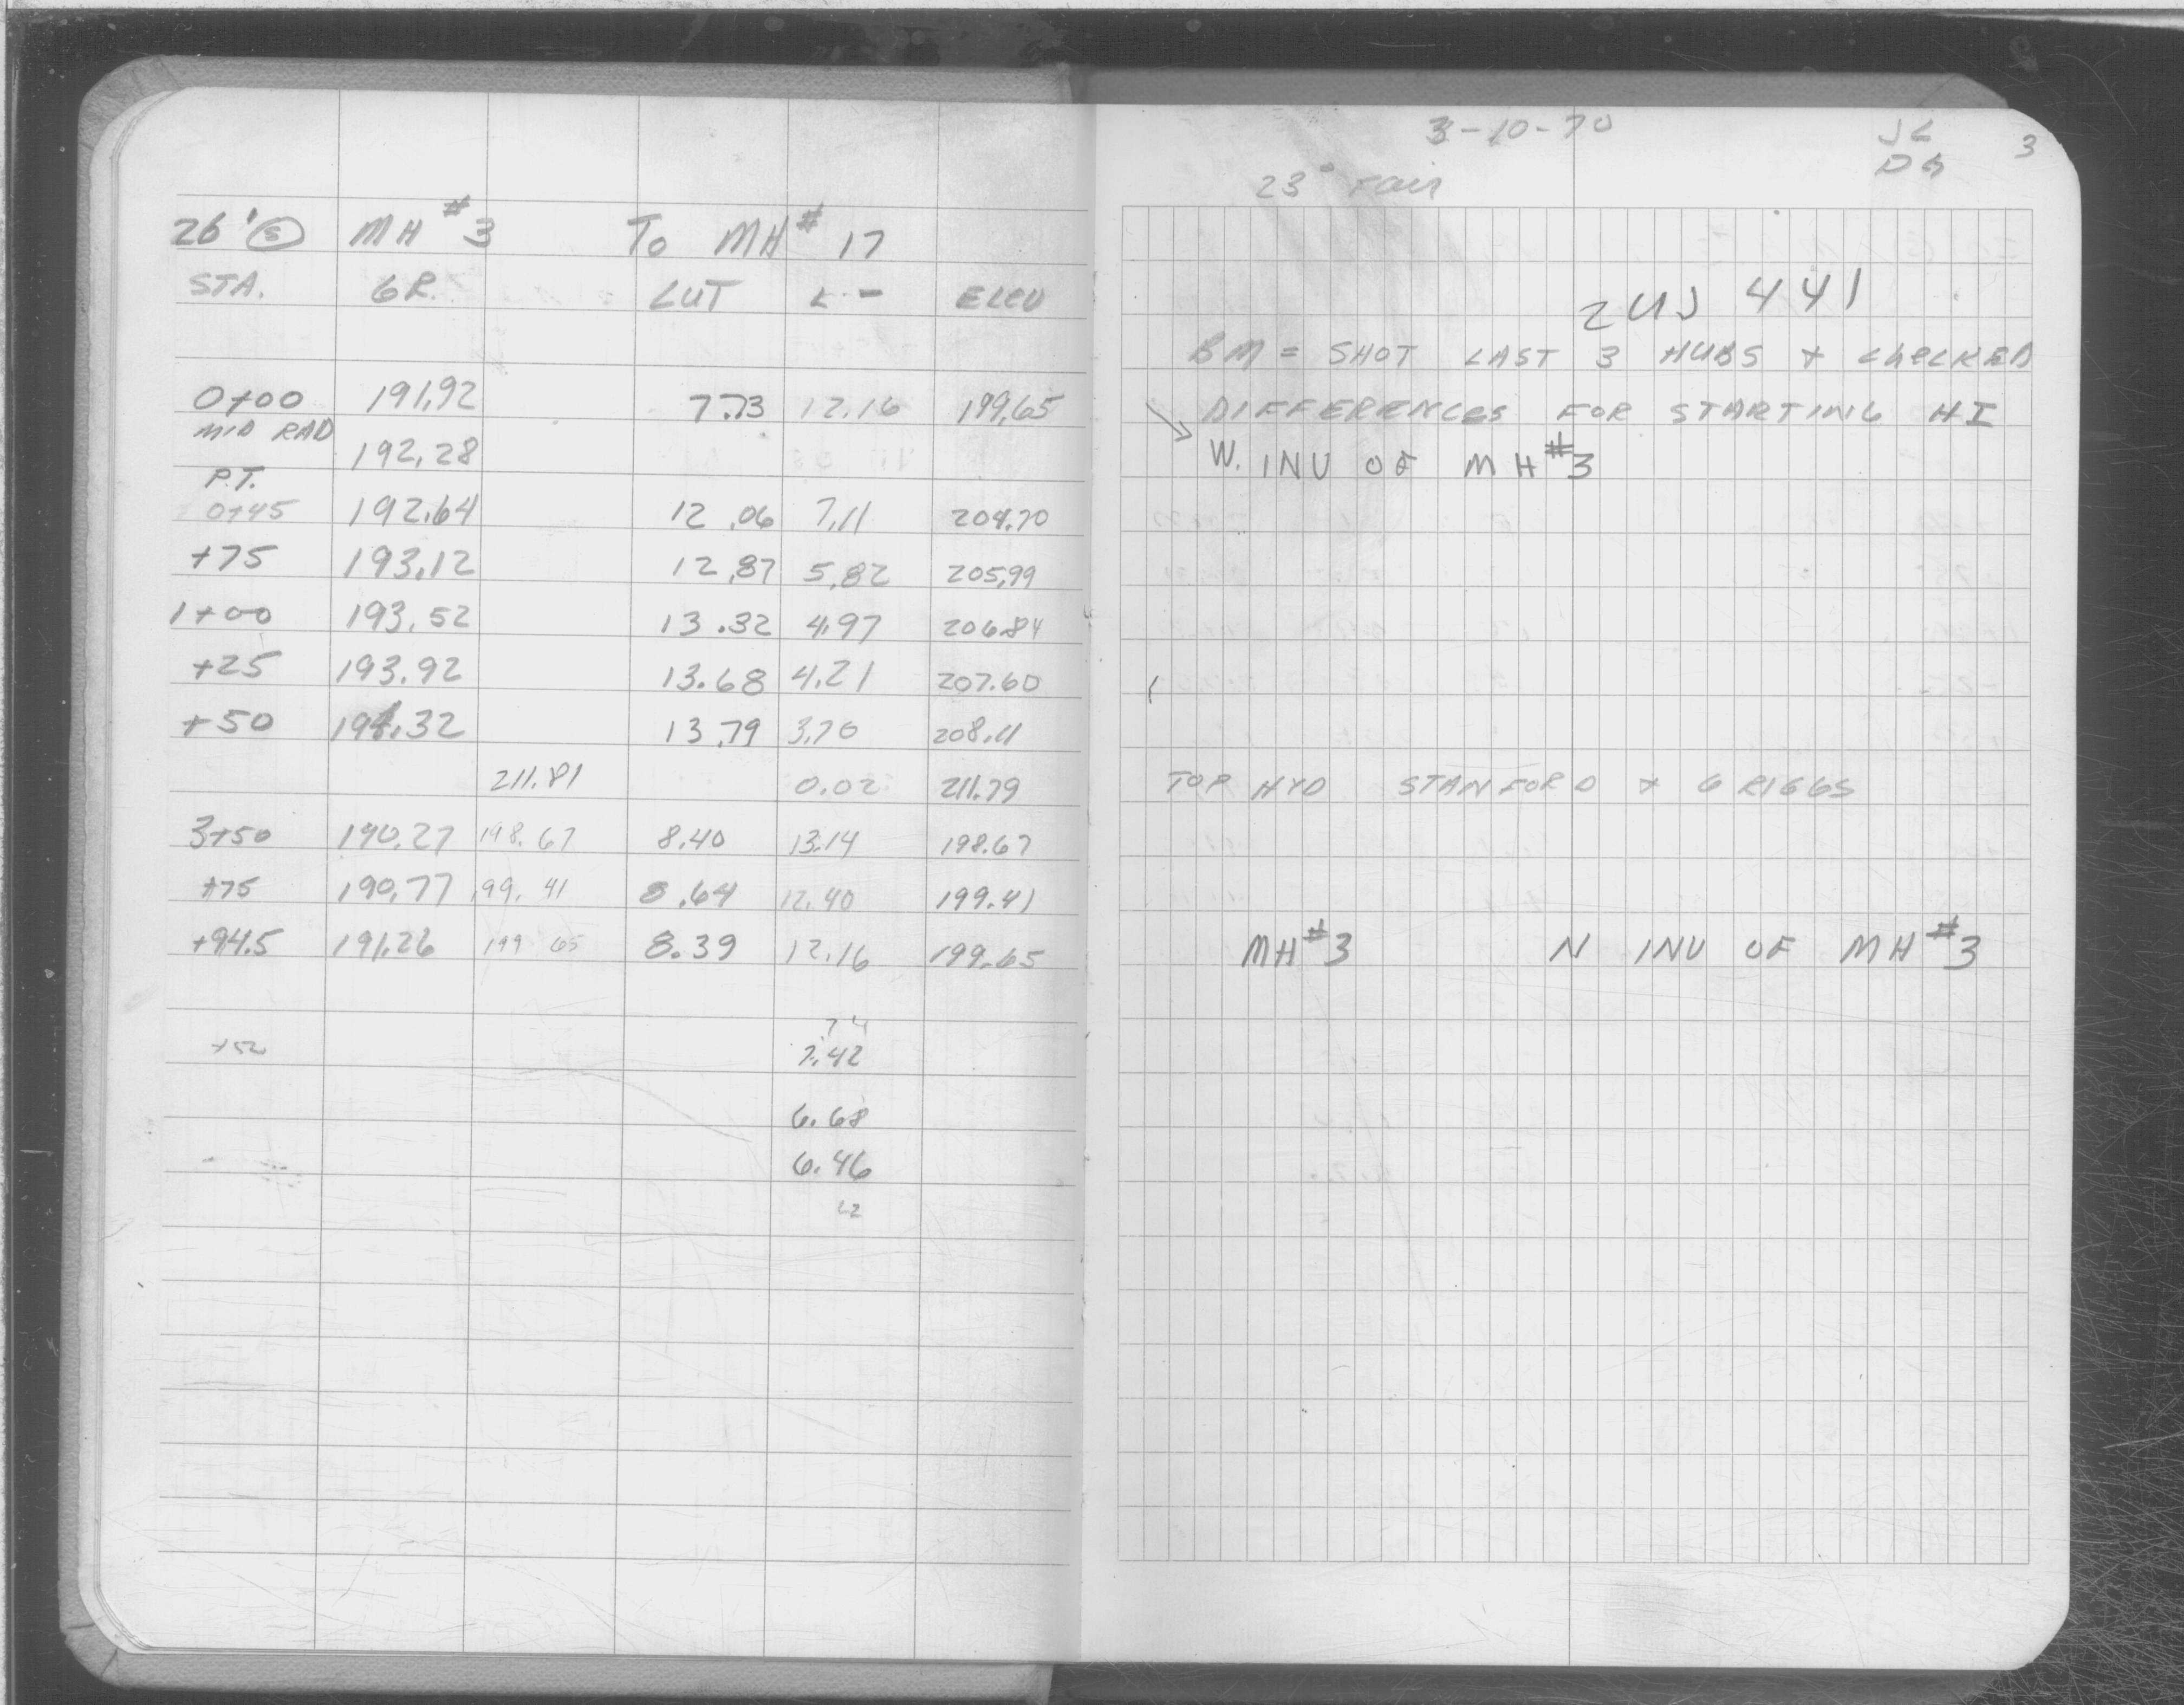 26' Ⓢ MH #3 To MH # 17
STA. GR. CUT - ELEV
0+00 191.92 7.73 12.16 199.65
MID RAD 192.28
P.T.
0+45 192.64 12.06 7.11 204.70
+75 193.12 12.87 5.82 205.99
1+00 193.52 13.32 4.97 206.84
+25 193.92 13.68 4.21 207.60
+50 194.32 13.79 3.70 208.11
211.81 0.02 211.79
3+50 190.27 198.67 8.40 13.14 198.67
+75 190.77 199.41 8.64 12.40 199.41
+94.5 191.26 199 65 8.39 12.16 199.65
+50 7.42
6.68
6.46
3-10-70 JC 3
DG
23° Fair
441
BM = SHOT LAST 3 HUBS + CheCKED
DIFFERENCes FOR STARTING HI
W. INV OF MH #3
TOP HYD STANFORD + GRIGGS
MH #3 N INV OF MH #3